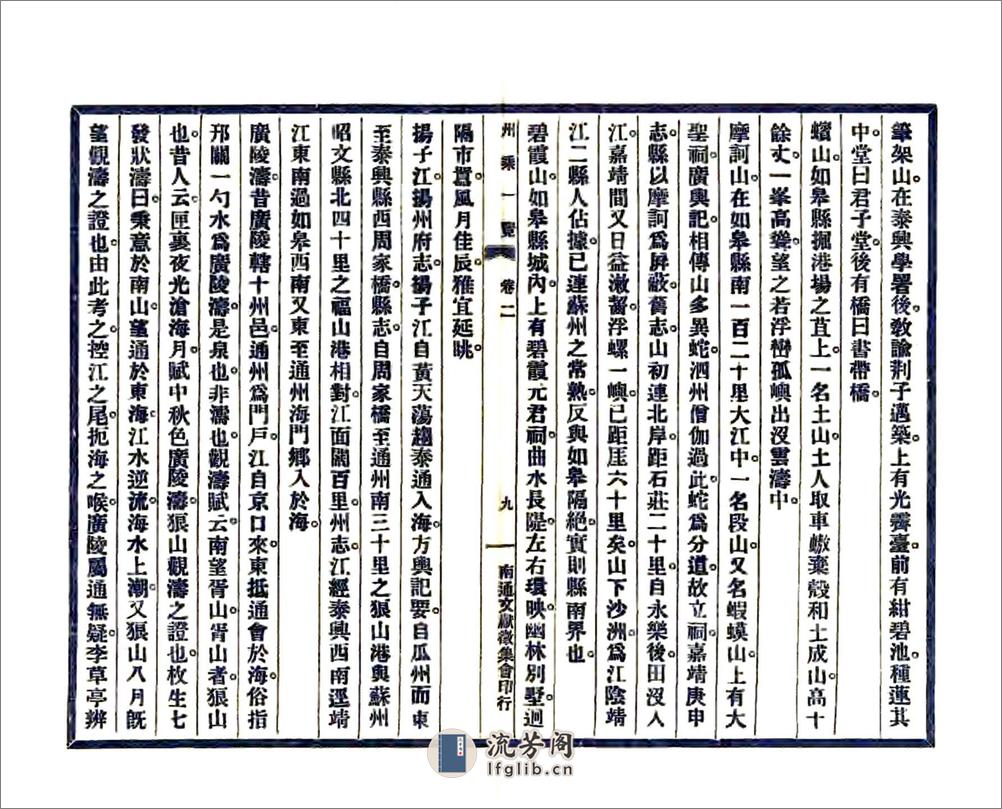 筆架山在泰興學署後教諭荆子邁築上有光霽臺前有紺碧池種蓮其
中堂曰君子堂後有橋曰書帶橋
蠙山如皋縣掘港場之苴上一名土山土人取車螯棄殼和土成山高十
餘丈一峯高聳望之若浮巒孤嶼出沒雲濤中
摩訶山在如皋縣南一百二十里大江中一名段山又名蝦蟆山上有大
聖祠廣輿記相傳山多異蛇泗州僧伽過此蛇爲分道故立祠嘉靖庚申
志縣以摩訶爲屏蔽舊志山初連北岸距石莊二十里自永樂後田沒入
江嘉靖間又日益漱齧浮螺一嶼已距厓六十里矣山下沙洲爲江陰靖
江二縣人佔據已連蘇州之常熟反與如皋隔絕實則縣南界也
碧霞山如皋縣城內上有碧霞元君祠曲水長隄左右環映幽林別墅迴
州乘一覽
卷二
九
南通文獻徵集會印行
隔市囂風月佳辰雅宜延眺
揚子江揚州府志揚子江自黃天蕩趨泰通入海方輿記要自瓜州而東
至泰興縣西周家橋縣志自周家橋至通州南三十里之狼山港與蘇州
昭文縣北四十里之福山港相對江面闊百里州志江經泰興西南逕靖
江東南過如皋西南又東至通州海門鄉入於海
廣陵濤昔廣陵轄十州邑通州爲門戶江自京口來東抵通會於海俗指
邗關一勺水爲廣陵濤是泉也非濤也觀濤賦云南望胥山胥山者狼山
也昔人云匣裏夜光滄海月賦中秋色廣陵濤狼山觀濤之證也枚生七
發狀濤曰秉意於南山望通於東海江水逆流海水上潮又狼山八月既
望觀濤之證也由此考之控江之尾扼海之喉廣陵屬通無疑李草亭辨
流芳阁
lfglib.cn